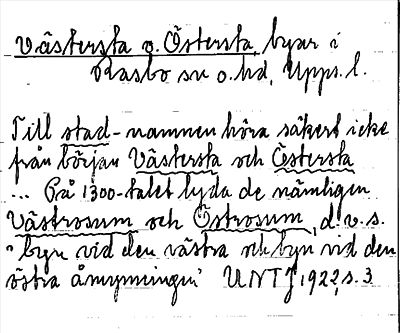 Västersta o. Östersta, byar i
Rasbo sn o. hd, Upps. l.
Till stad-namnen höra säkert icke
från början Västersta och Östersta
... På 1300-talet lyda de nämligen
Västrosum och Östrosum, d. v. s.
"byn vid den västra och byn vid den
östra åmynningen" UNT 1922, s. 3.